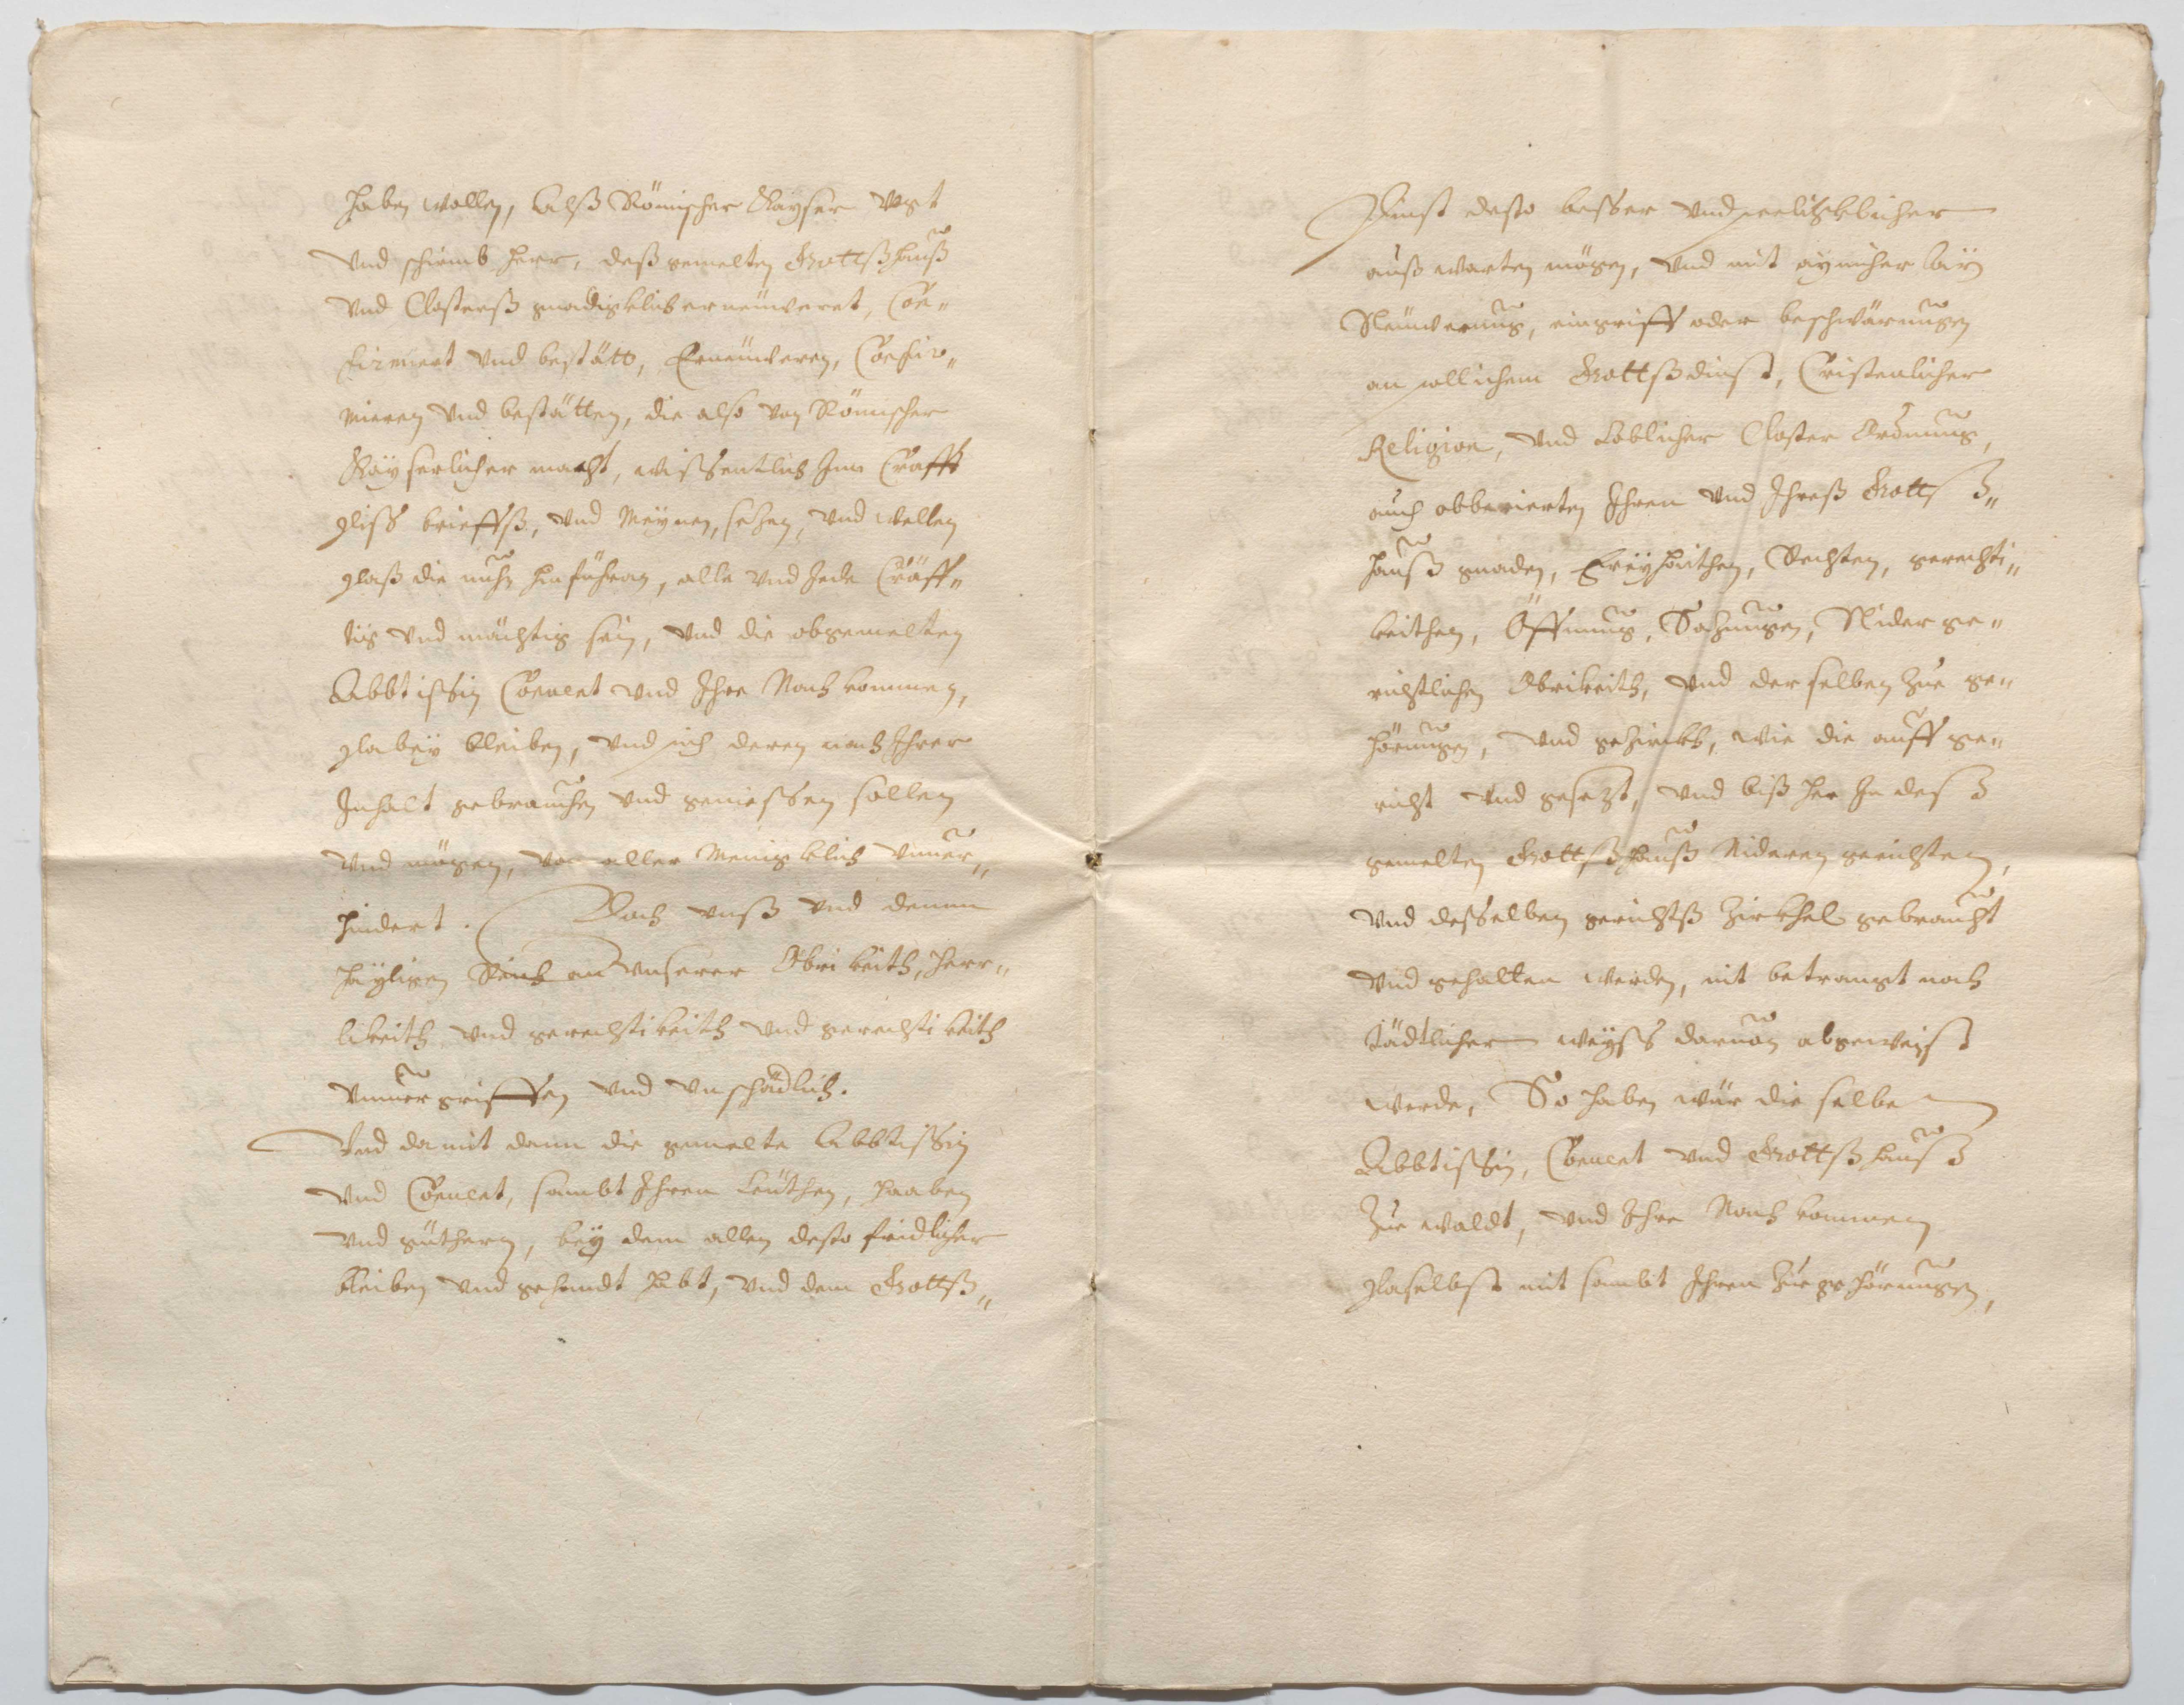 haben wollen, Alß Römischer Kayser Vogt
Vnd schirmb herr, deß gemelten Gottßhauß
Vnd Closterß gnadigklich ernëuweret, Con„
firmiert Vnd bestätt, Ernëuweren, Confir„
mieren Vnd bestätten, die also von Römischer
Kayserlicher macht, wissentlich Inn Crafft
diss brieffß, Vnd Meynen, sezen, Vnd wellen
daß die nuhn hinführan, alle Vnd Jede Cräff„
tig Vnd mächtig sein, Vnd die obgemelten
Abbtissin Conuent Vnd Ihre Nachkommen,
dabey bleiben, Vnd sich deren nach Ihrer
Inhalt gebrauchen Vnd geniessen sollen
Vnd mögen, von aller Menigklich Vnuer„
hindert. Doch vnß Vnd denen
Häyligen Reich an Vnserer Obrikeith, Herr„
likeith Vnd gerechtikeith Vnd gerechtikeith
Vnuergriffen Vnd Vnschädlich.
Vnd damit dann die gemelte Abbtissin
Vnd Conuent, sambt Ihren Leüthen, Haaben
Vnd güthern, bëy dem allen desto fridlicher
bleiben Vnd gehandt habt, Vnd dem Gottß„
Dinst desto besser Vnd seelichklicher
auß warten mögen, Vnd mit aynicher läy
Nëuwerung, eingriff oder beschwärungen
an sollichem Gottßdinst, Cristenlicher
Religion, Vnd Loblicher Closter Ordnung,
auch obberierten Ihren Vnd Ihreß Gottß„
hauß gnaden, Frëyhëithen, Rechten, gerechti„
keithen, Öffnung, Sazungen, Nider ge„
richtlichen Obrikeith, Vnd derselben Zue ge„
hörungen, Vnd gezirckh, wie die auff ge„
richt Vnd gesezt, Vnd biß her In deß
gemelten Gottßhauß Nideren gerichten,
Vnd desselben gerichtß Zirkhel gebraucht
Vnd gehalten werden, nit betrangt noch
tädtlicher weyss daruon abgeweist
werde, So haben wür die selbe
Abbtissin, Conuent Vnd Gottßhauß
Zue Waldt, Vnd Ihre Nachkommen
daselbst mit sambt Ihren Zuegehörungen,